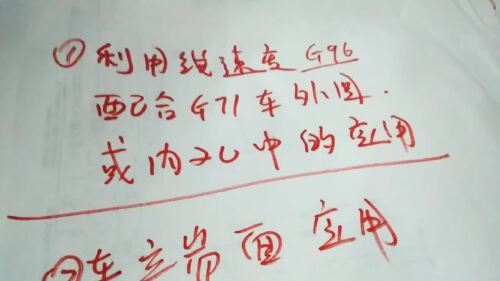 ①利用线速度G96
配合G71车外圆.
或内孔中的应用
②车立端面应用